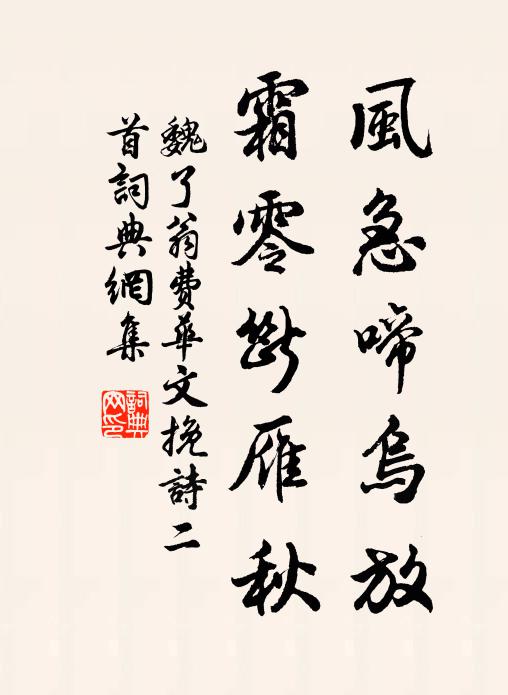 風急啼烏放
霜零斷雁秋
魏了翁費華文挽詩二
首詞典網集
詞典
网印